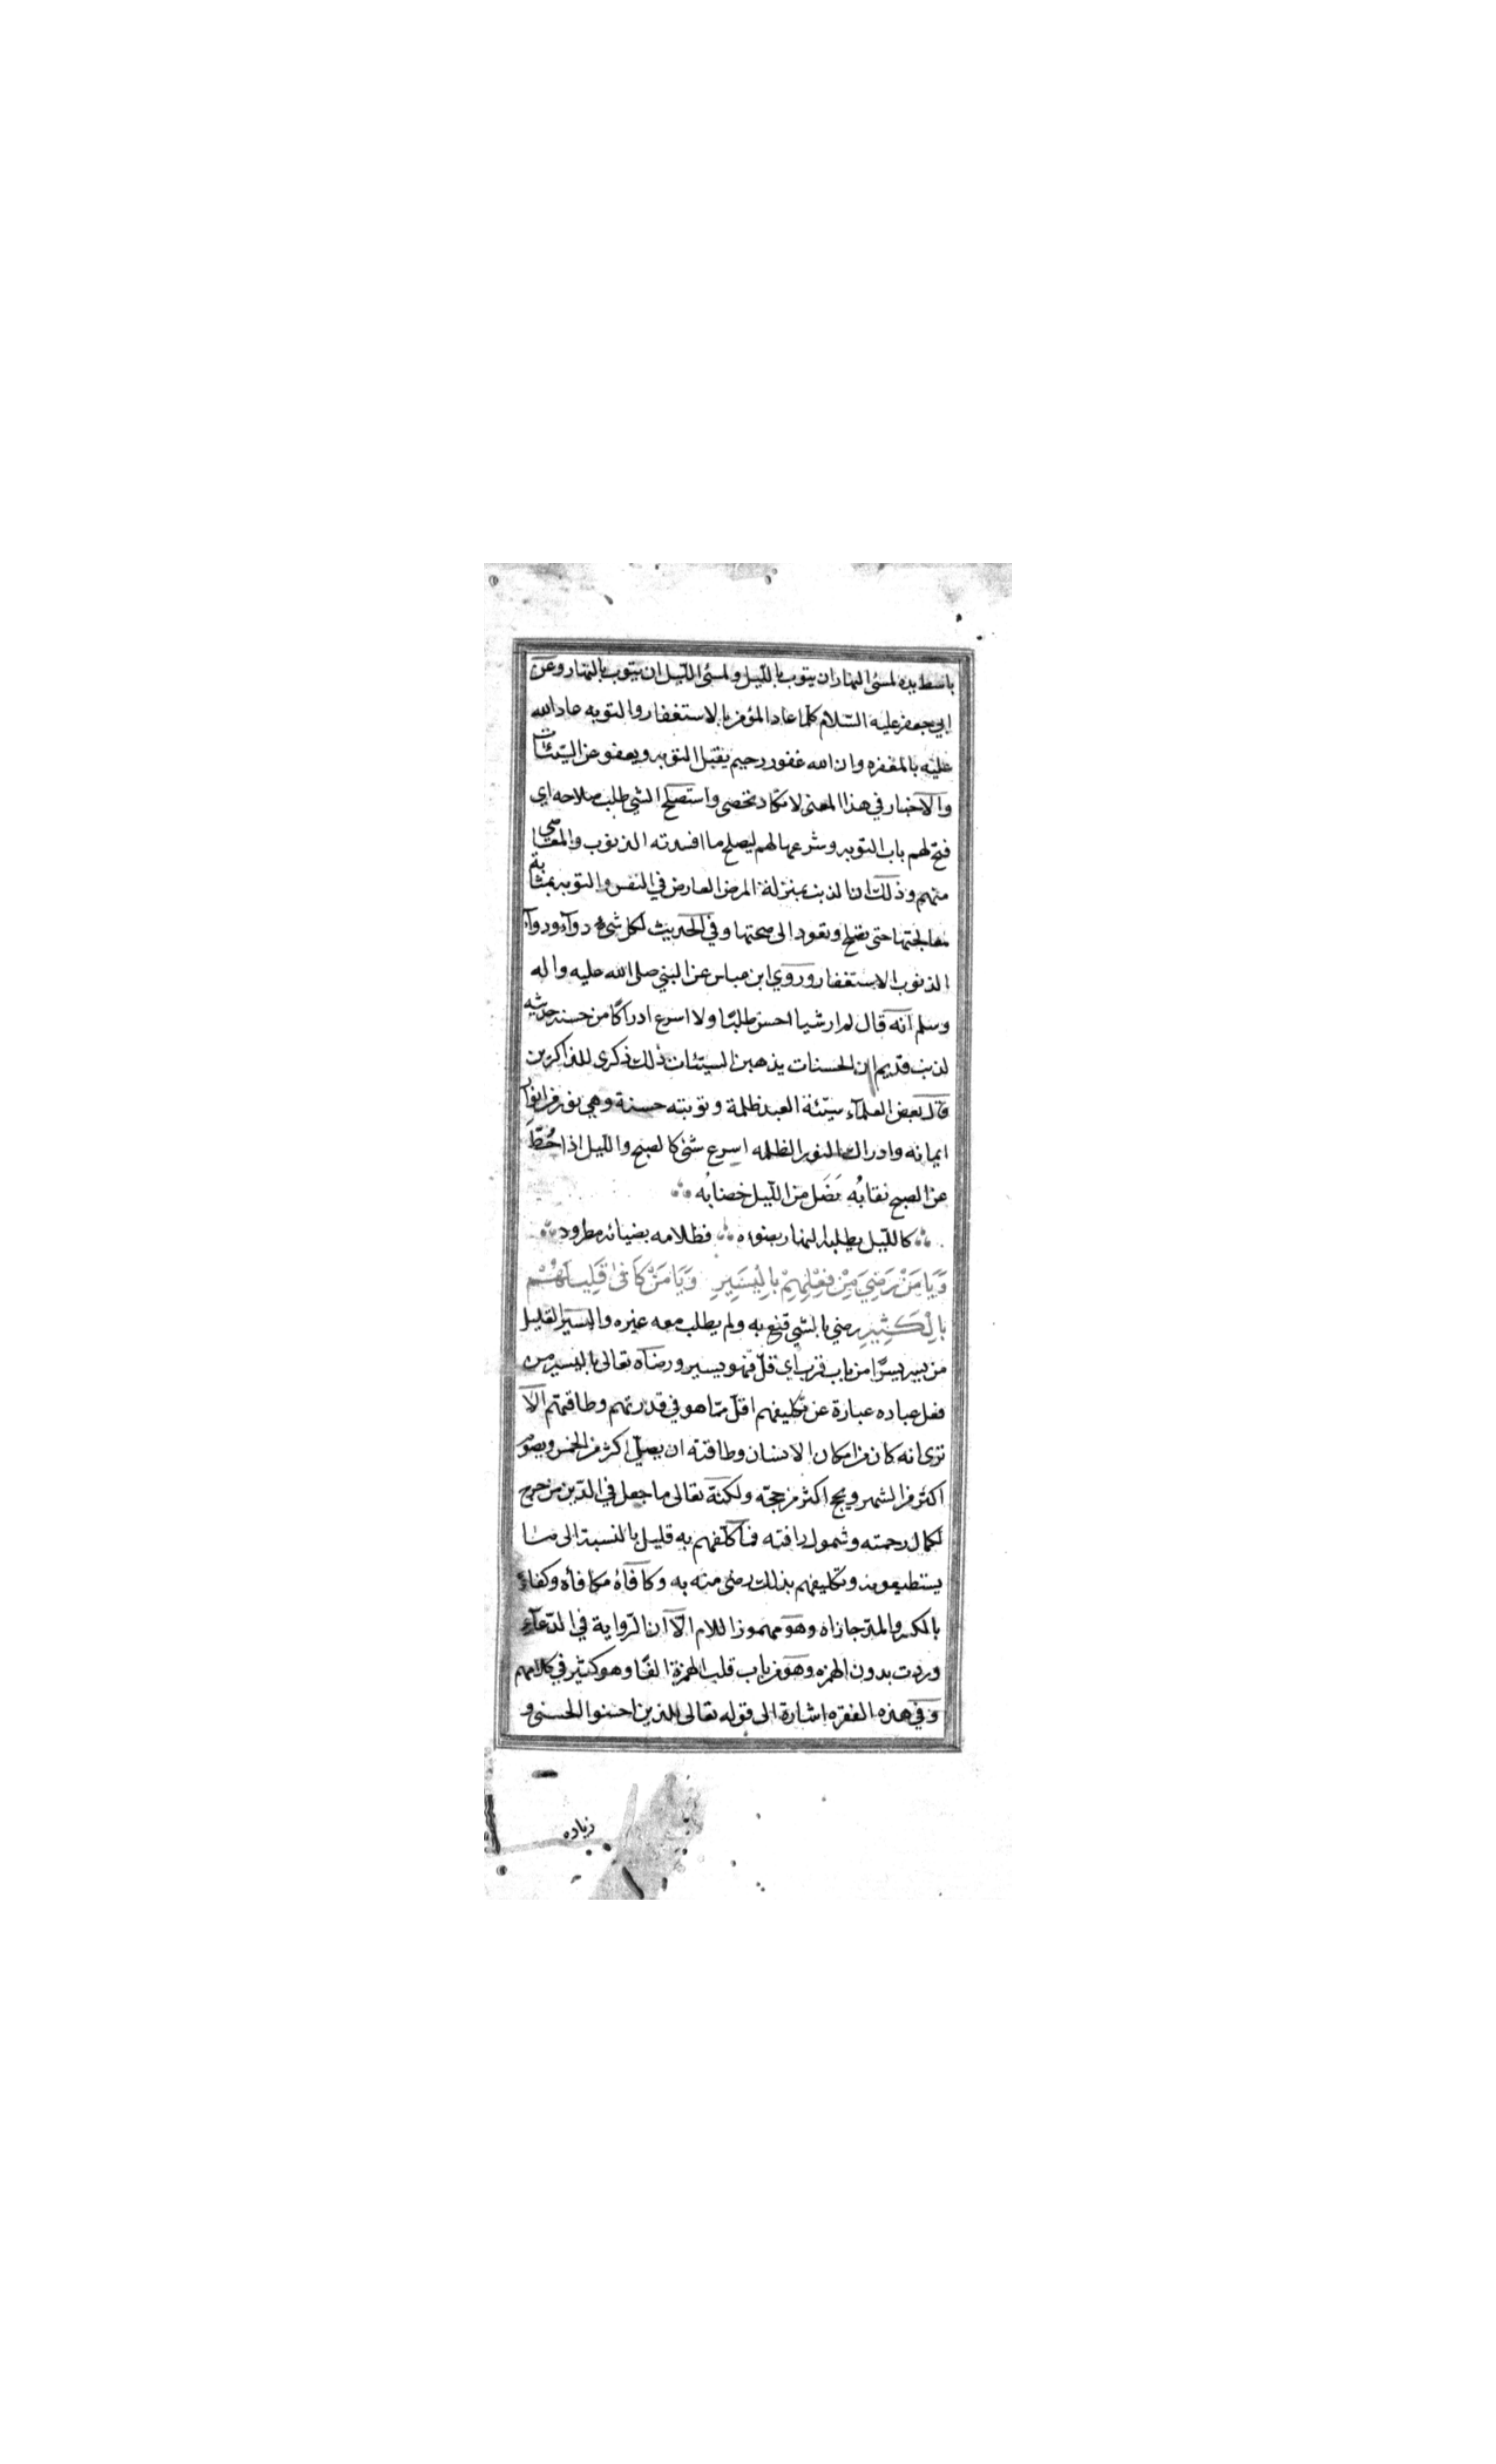 باسط يده لمسئ النهار ان يتوب بالليل ولمسئ الليل ان يتوب بالنهار وعن
ابي جعفر عليه السّلام كلما عاد المؤمن بالاستغفار والتوبه عاد الله
عليه بالمغفره وان الله غفور رحيم يقبل التوبه ويعفو عن السّيّئات
والاخبار في هذا المعنى لا تكاد تحصى واستصلح الشي طلب صلاحه اي
فتح لهم باب التوبه وشرعها لهم ليصلح ما افسدته الذنوب والمعاصي
منهم وذلك ان الذنب بمنزلة المرض العارض في النفس والتوبه بمثابة
معالجتها حتى تصلح وتعود الى صحتها وفي الحديث لكل شئ دوآء ودوآء
الذنوب الاستغفار وروي ابن عباس عن النبي صلى الله عليه واله
وسلم انه قال لم ار شيا احسن طلبًا ولا اسرع ادراكًا من حسنه حديثه
لذنب قديم ان الحسنات يذهبن السيّئات ذلك ذكرى للذاكرين
قال بعض العلمآء سيّئة العبد ظلمة وتوبته حسنة وهي نور من انوار
ايمانه وادراك النور الظلمه اسرع شئ كالصبح والليل اذا حُطَّ
عن الصبح نقابُه نَصَل من اللّيل خضابُه
كاللّيل يطلبه النهار بضوءه فظلامه بضيائه مطرود
وَيَا مَنْ رَضِيَ مِنْ فِعْلِهِمْ بِالْيَسِيرِ وَيَا مَنْ كَافىٰ قَلِيلَهُمْ
بِالْكَثِيرِ رضي بالشي قنع به ولم يطلب معه غيره واليسير القليل
من يسر يسرًا من باب قرب اي قلّ فهو يسير ورضاه تعالى باليسير من
فعل عباده عبارة عن تكليفهم اقلّ ممّا هو في قدرتهم وطاقتهم الا
ترى انه كان من امكان الانسان وطاقته ان يصلّي اكثر من الخمس ويصوم
اكثر من الشهر ويحج اكثر من حجّه ولكنّه تعالى ما جعل في الدّين من حرج
لكمال رحمته وشمول رافته فما كلّفهم به قليل بالنسبة الى ما
يستطيعونه وتكليفهم بذلك رضى منه به وكافاهُ مكافاة وكفاءً
بالكسر والمد جازاه وهو مهموز اللام الّا ان الرّواية في الدّعآء
وردت بدون الهمزه وهو من باب قلب الهمزة الفًا وهو كثير في كلامهم
وفي هذه الفقره اشارة الى قوله تعالى للذين احسنوا الحسنى و
زياده